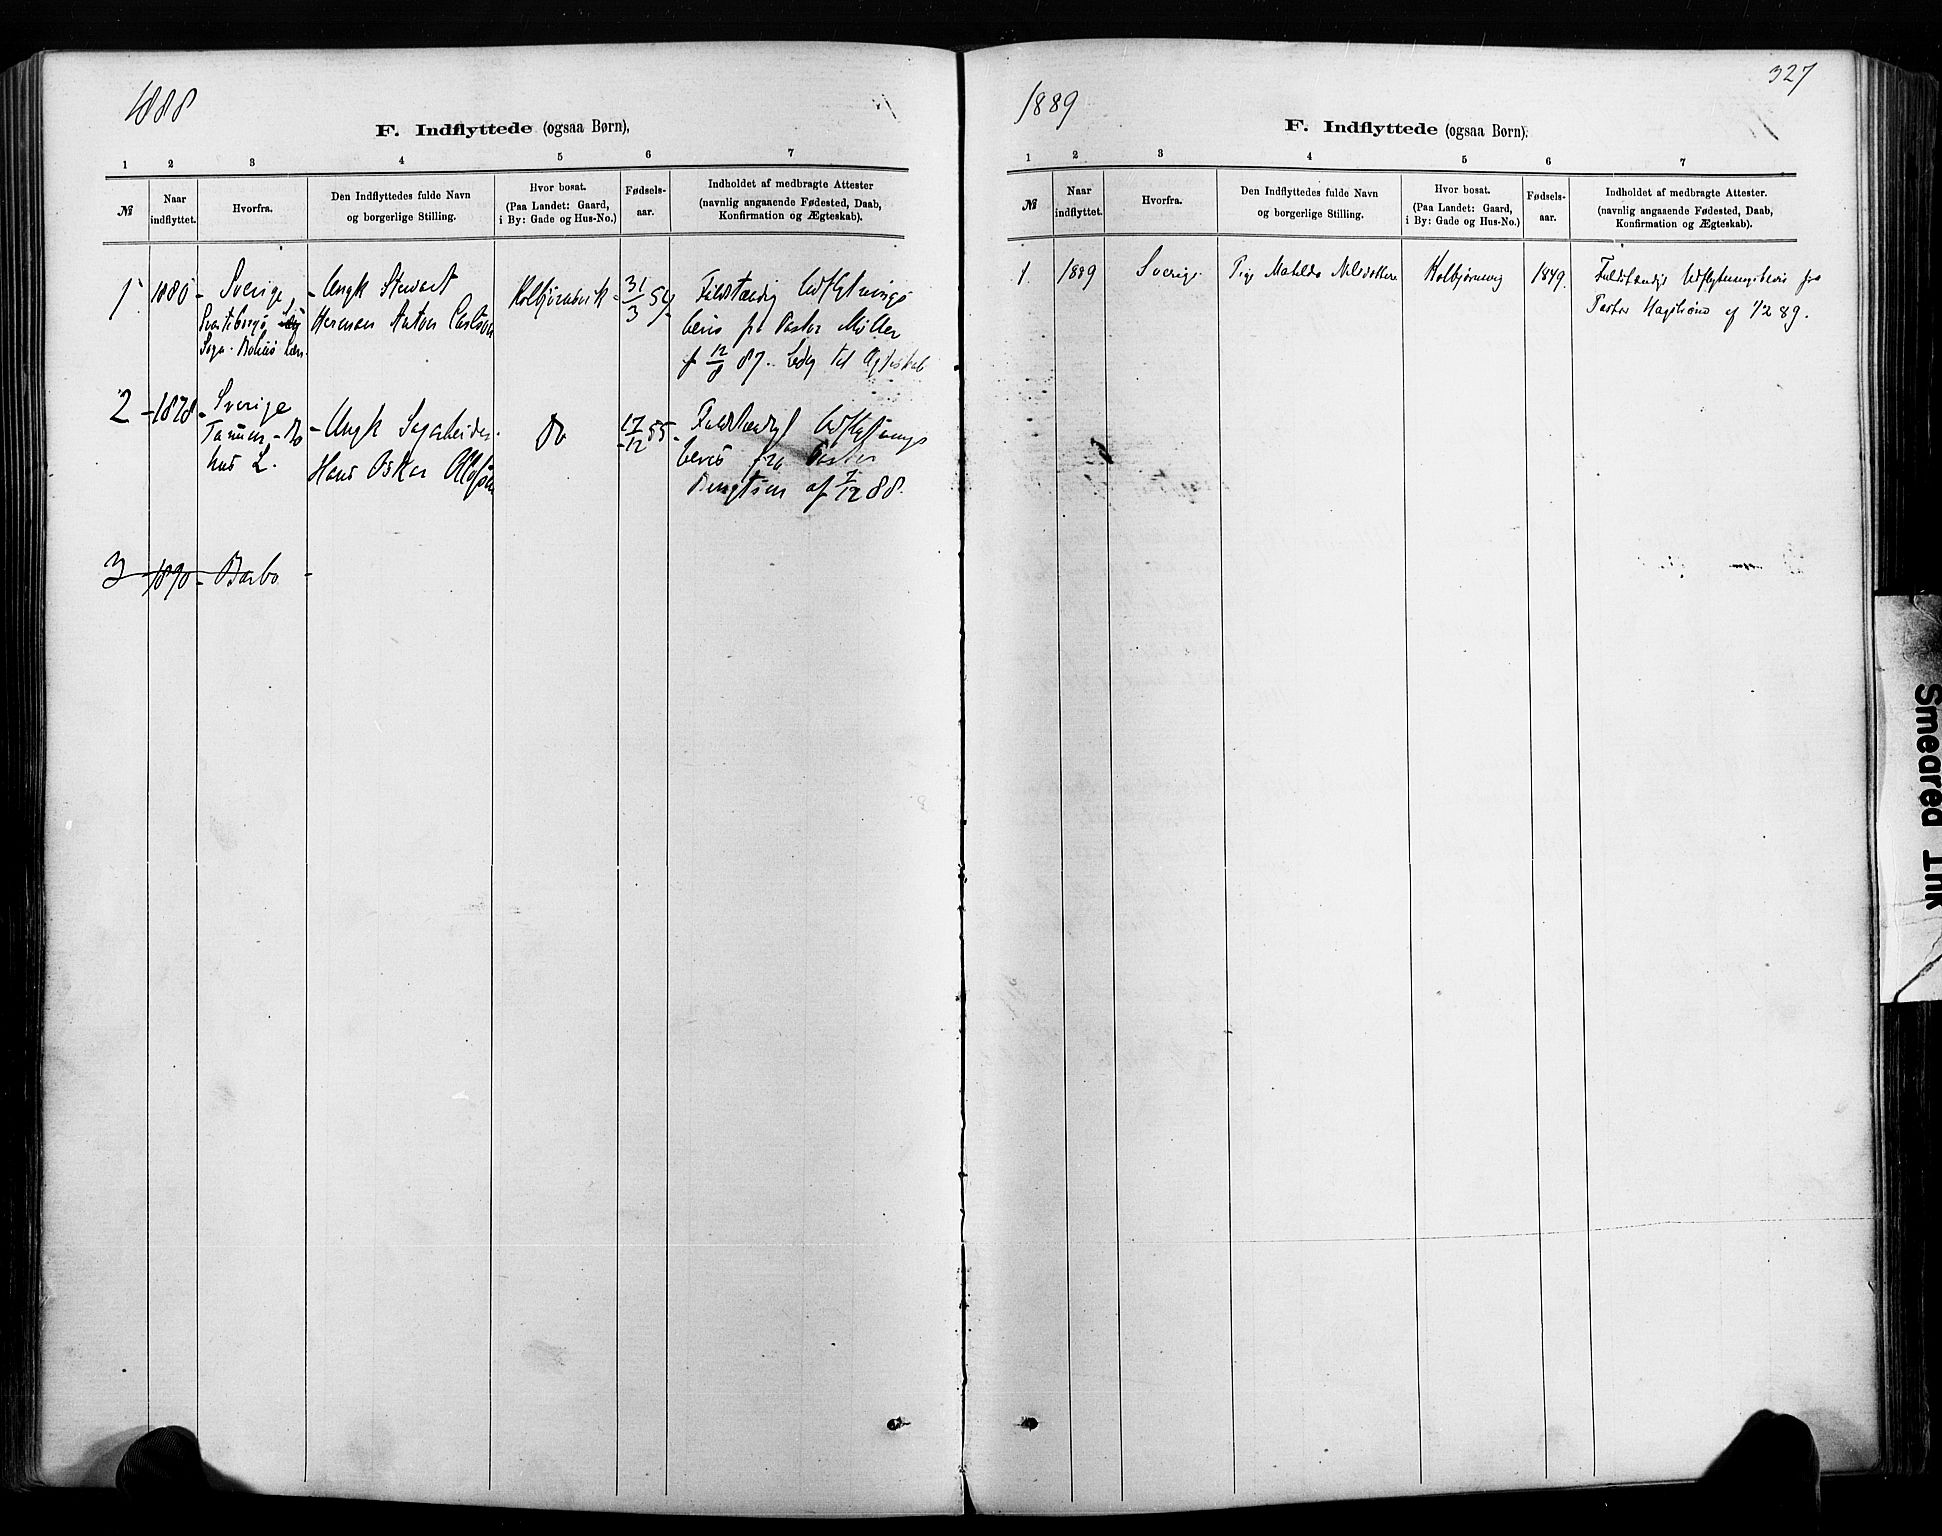 1888
F. Indflyttede (ogsaa Børn),
1 2 3 4 5 6 7
№
Naar
indflyttet.
Hvorfra.
Den Indflyttedes fulde Navn
og borgerlige Stilling.
Hvor bosat.
(Paa Landet: Gaard,
i By: Gade og Hus-No.)
Fødsels-
aar.
Indholdet af medbragte Attester
(navnlig angaaende Fødested, Daab,
Konfirmation og Ægteskab).
1. 1880 - Sverige - Ungk Steward Kolbjørnsvik - 31/3 54 - Fuldstændig Udflytnings
Herman Anton Carlson
bevis fr Pastor Möller
f 12/8 87. Ledig til Ægteskab
2 - 1878 - Sverige
Tanum - Bo
hus L.
- Ungk Sagarbeider
Hans Oskar Olofsen
Do
17/12 55 -
Fuldstændigt Udflytnings
bevis fra Pastor
Bengtson af 7/12 88.
3 - 1890 - Barbo -
327
1889
F. Indflyttede (ogsaa Børn),
1 2 3 4 5 6 7
№
Naar
indflyttet.
Hvorfra.
Den Indflyttedes fulde Navn
og borgerlige Stilling.
Hvor bosat.
(Paa Landet: Gaard,
i By: Gade og Hus-No.)
Fødsels-
aar.
Indholdet af medbragte Attester.
(navnlig angaaende Fødested, Daab,
Konfirmation og Ægteskab).
1. 1889 Sverige. Pige Matilda Nilsdotter Kolbjørnsvig 1849. Fuldstændigt Udflytningsbevis fra
Pastor af 1/2 89.
Smeared Ink